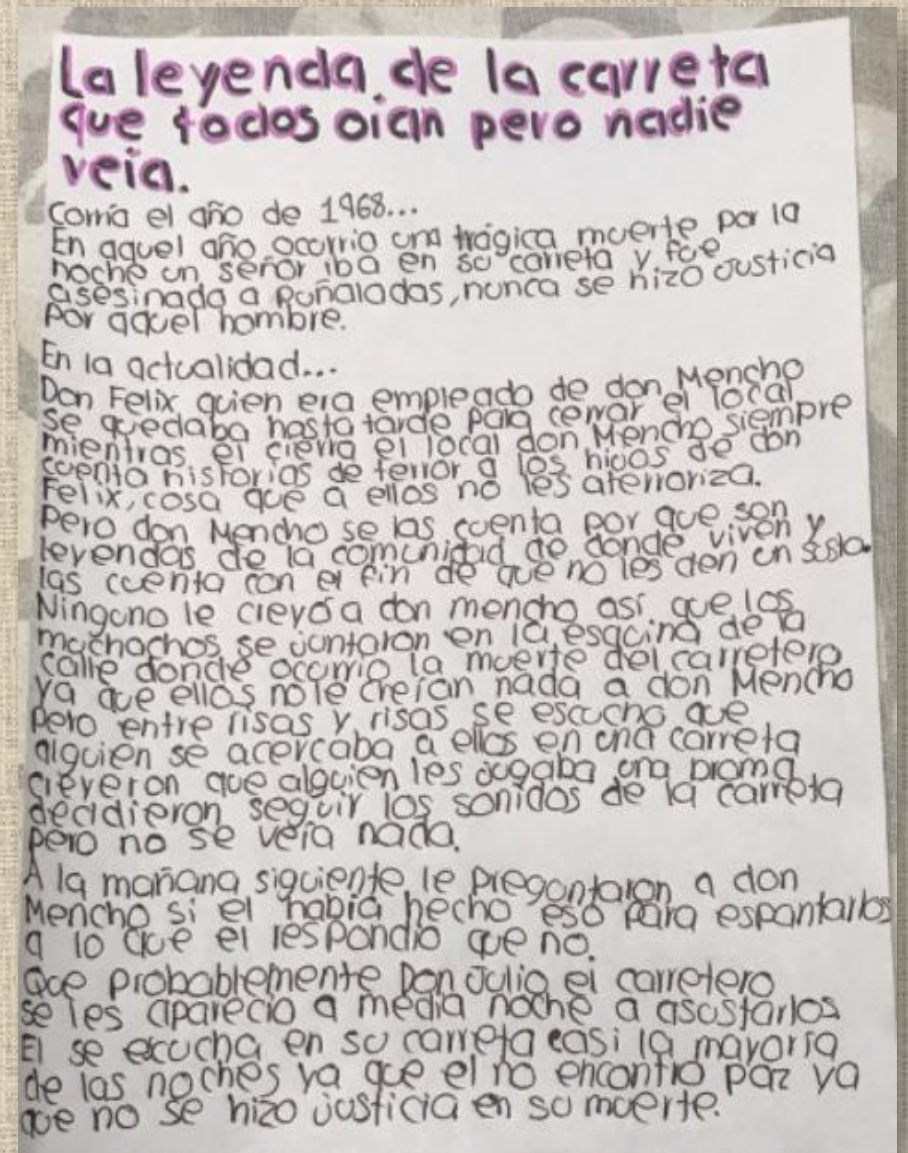 La leyenda de la carreta
que todos oian pero nadie
veia.
Corría el año de 1968...
En aquel año ocurrio una trágica muerte por la
noche un señor iba en su carreta y fue
asesinada a puñaladas, nunca se hizo justicia
Por aquel hombre.
En la actualidad...
Don Felix quien era empleado de don Mencho
se quedaba hasta tarde para cerrar el local
mientras el cierra el local don Mencho siempre
cuenta historias de terror a los hijos de don
Felix, cosa que a ellos no les aterroriza.
Pero don Mencho se las cuenta por que son
leyendas de la comunidad de donde viven y
las cuenta con el fin de que no les den un susto.
Ninguno le creyó a don mencho así que los
muchachos se juntaron en la esquina de la
calle donde ocurrio la muerte del carretero
ya que ellos no le creían nada a don Mencho
Pero entre risas y risas se escucho que
alguien se acercaba a ellos en una carreta
creyeron que alguien les jugaba una broma
decidieron seguir los sonidos de la carreta
pero no se veía nada.
A la mañana siguiente le preguntaron a don
Mencho si el había hecho eso para espantarlos
a lo que el respondio que no.
Que probablemente Don Julio el carretero
se les aparecio a media noche a asustarlos
El se escucha en su carreta casi la mayoria
de las noches ya que el no encontro paz ya
que no se hizo justicia en su muerte.